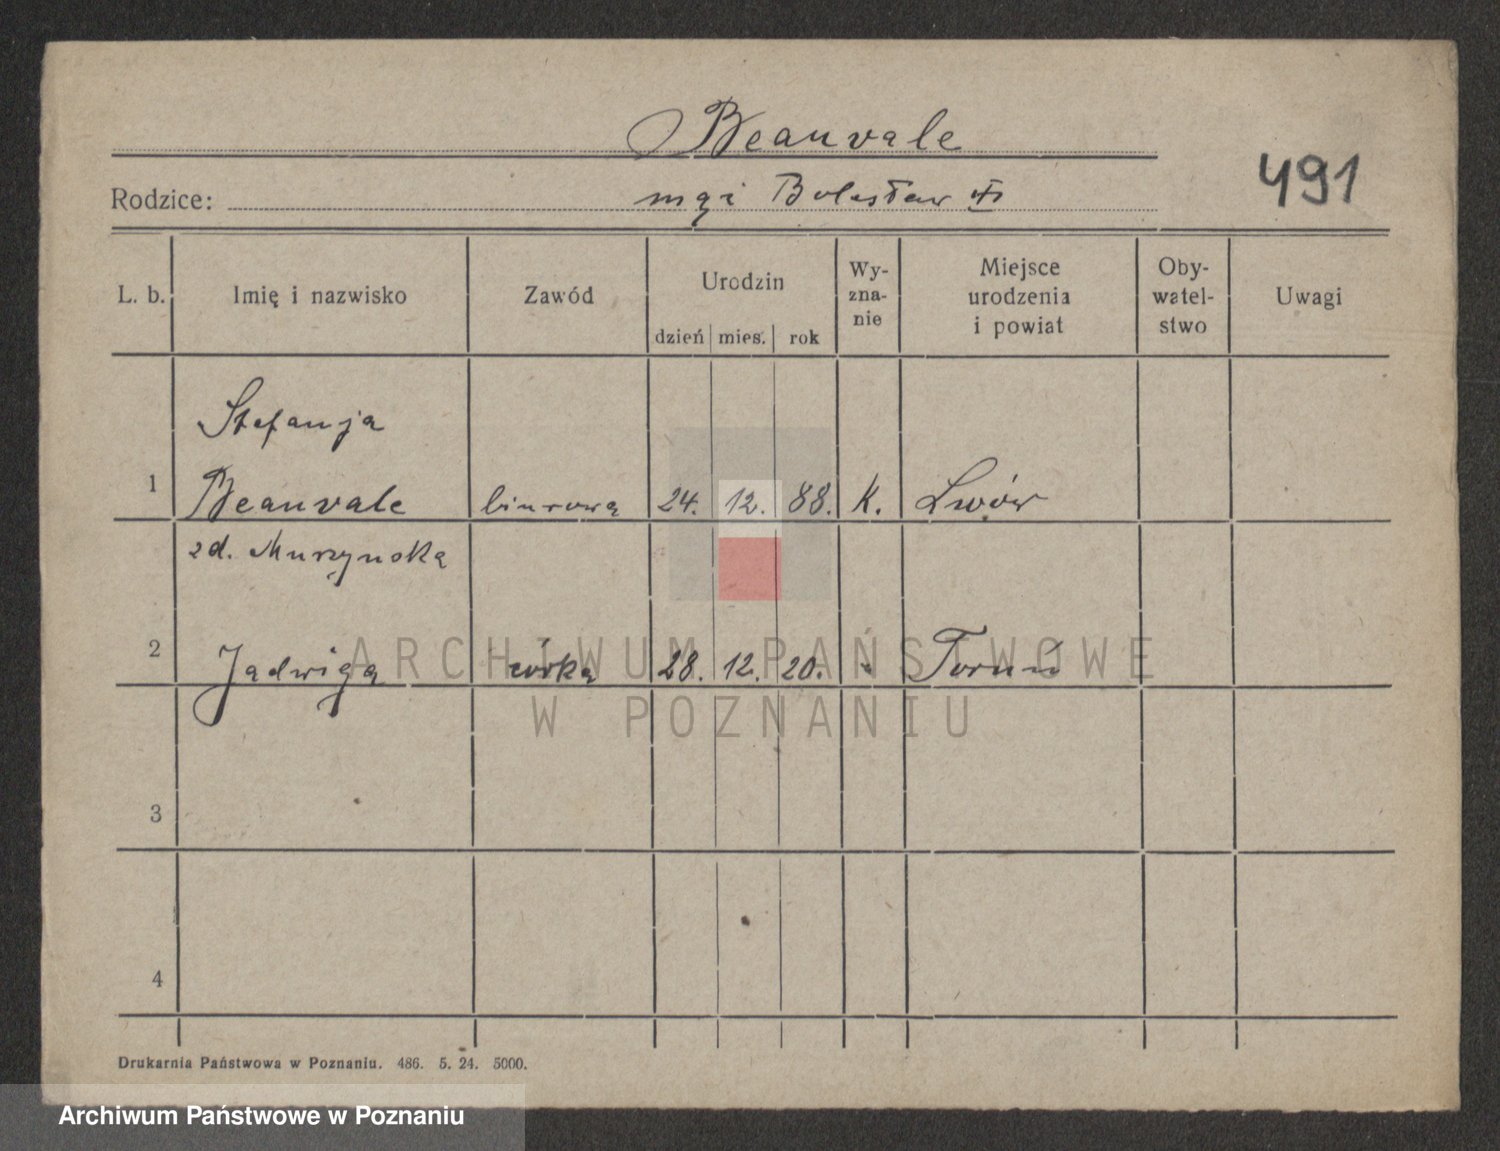 Beauvale
491
Rodzice: mąż Bolesław
L. b. Imię i nazwisko Zawód Urodzin dzień mies. rok Wy-zna-nie Miejsce urodzenia i powiat Oby-watel-stwo Uwagi
Stefanja
1 Beauvale biurowa 24. 12. 88. K. Lwów
zd. Muszyńska
2 Jadwiga córka 28. 12. 20. " Toruń
3
4
ARCHIWUM PAŃSTWOWE
W POZNANIU
Drukarnia Państwowa w Poznaniu. 486. 5. 24. 5000.
Archiwum Państwowe w Poznaniu